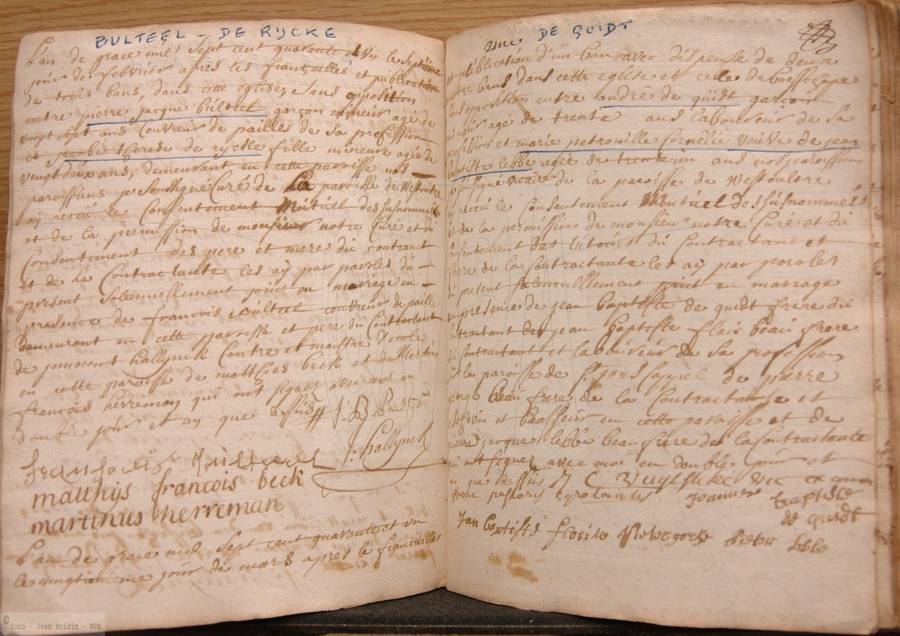 BULTEEL - DE RIJCKE
L'an de grace mil sept cent quarante et un le septième
jour de febvrier après les françailles et publication
de trois bans dans cette eglise, sans opposition
entre pierre jacque bulteel garçon mineur agé de
vingt sept ans couvreur de pailles de sa profession
et jacobe therese de rijcke fille mineure agée de
vingt deux ans, demeurant en cette paroisse nos
paroissiens je soussigné Curé de La paroisse de Westoutre
ay recu le Consentement Mutuel des susnommés
et de la permission de monsieur notre Curé et du
Consentement des pere et mere du contractant
et de La Contractante les ay par paroles du
present solemnellement joint en mariage en
presence de francois bulteel couvreur de paille
Demeurant en cette paroisse et pere du Contractant
de innocent hallynck Contre et maistre d'ecole
en cette paroisse de matthias beck et de Martin
francois herreman qui ont signez avec moy en
double jour et an que dessus J: B:
J: hallynck
fransois bulteel
matthijs francois beck
martinus herreman
L'an de grace mil sept cent quarante et un
le vingtieme jour de mars apres le francailles
DE QUIDT
et publication d'un ban avec dispense de deux
autres bans dans cette eglise et celle de
opposition entre andré de quidt garçon
agé de trente ans laboureur de sa
profession et marie petronille Cornélie Voive de jean
baptiste lebbe agée de trente un ans nos paroissiens
je soussigné vicaire de la paroisse de Westoutre
ay recu le Consentement Mutuel des susnommés
et de la permission de monsieur notre Curé et du
consentement des tuteurs du Contractant et
pere de la Contractante les ay par paroles
du present solemnellement joint en mariage
en presence de jean baptiste de quidt frere du
contractant de jean baptiste floir beau frere
du contractant et laboureur de sa profession
en la paroisse de de pierre
beau frere de la Contractante et
et brasseur en cette paroisse et de
pierre jacque lebbe beaufrere de la Contractante
qui ont signez avec moi en double jour et
an que dessus
pastoris egrotantis
joannes
baptiste
de quidt
Jan baptiste
pieter lebbe
© foto - Jean Boidin - VPA